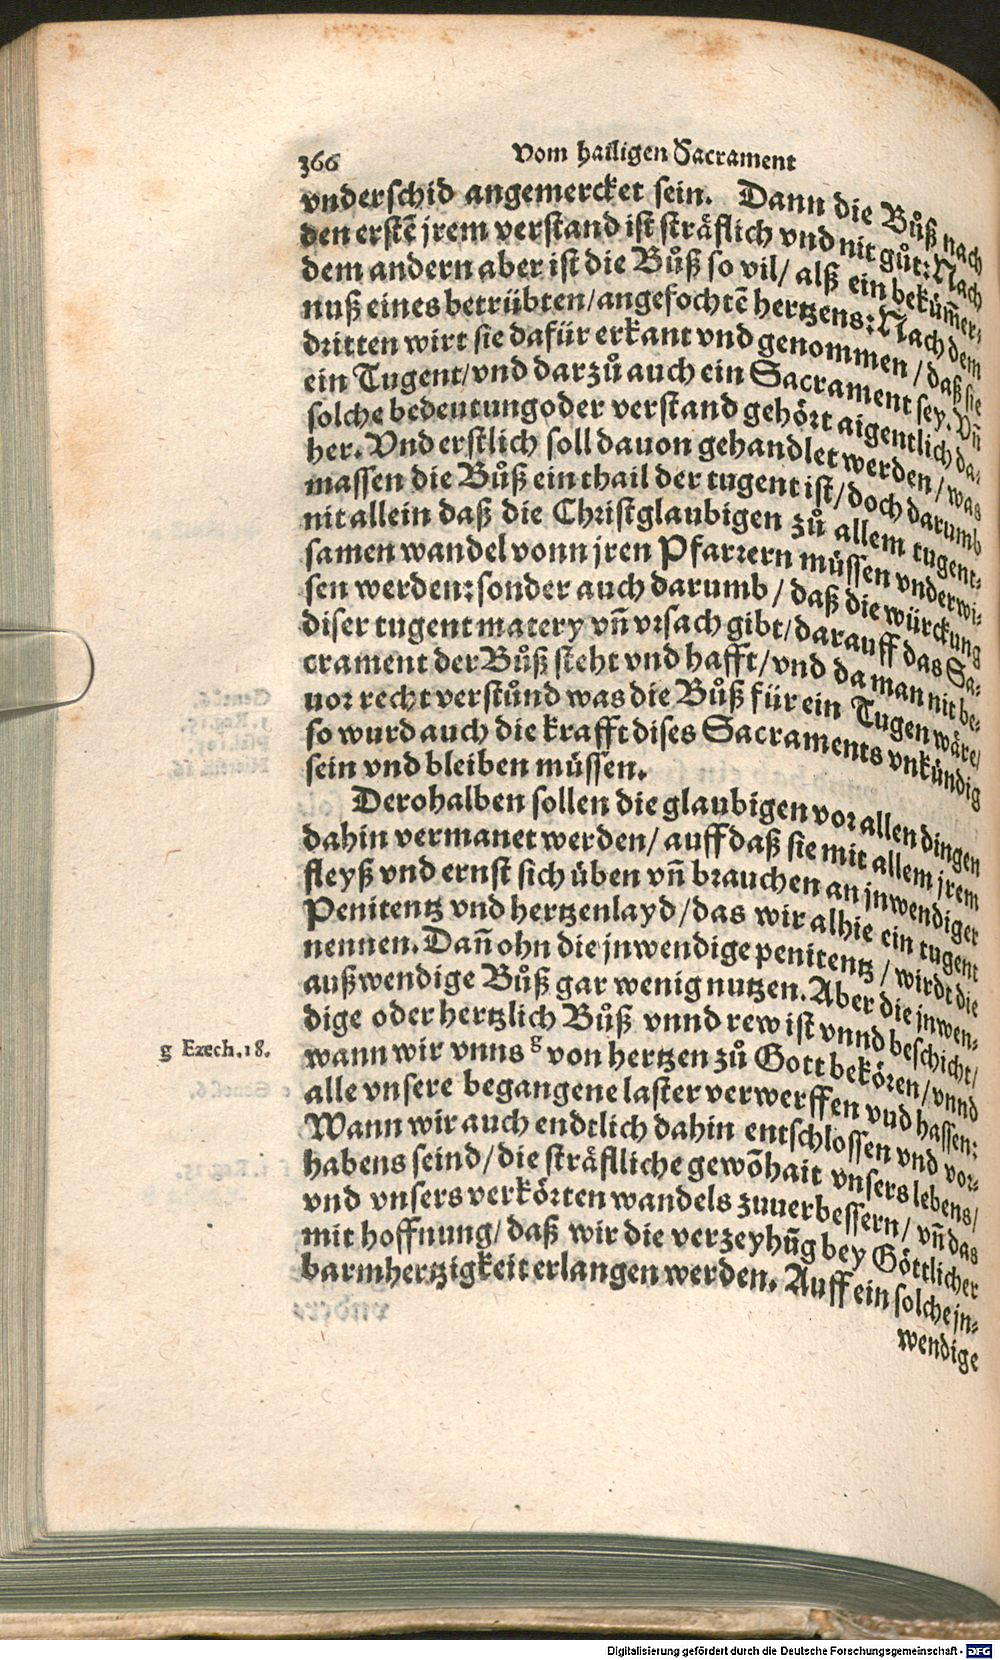 366 Vom hailigen Sacrament
vnderschid angemercket sein. Dann die Bůß nach
den erstẽ jrem verstand ist sträflich vnd nit gůt: Nach
dem andern aber ist die Bůß so vil/ alß ein bekům̃er-
nuß eines betrübten/angefochtẽ hertzens: Nach dem
dritten wirt sie dafür erkant vnd genommen / daß sie
ein Tugent/vnd darzů auch ein Sacrament sey. Vñ
solche bedeutung oder verstand gehört aigentlich da-
her. Vnd erstlich soll dauon gehandlet werden / was
massen die Bůß ein thail der tugent ist/ doch darumb
nit allein daß die Christglaubigen zů allem tugent-
samen wandel vonn jren Pfarrern müssen vnderwi-
sen werden: sonder auch darumb / daß die würckung
diser tugent matery vñ vrsach gibt/ darauff das Sa-
crament der Bůß steht vnd hafft/ vnd da man nit be-
uor recht verstůnd was die Bůß für ein Tugen wäre/
so wurd auch die krafft dises Sacraments vnkündig
sein vnd bleiben müssen.
Derohalben sollen die glaubigen vor allen dingen
dahin vermanet werden/ auff daß sie mit allem jrem
fleyß vnd ernst sich üben vñ brauchen an jnwendiger
Penitentz vnd hertzenlayd /das wir alhie ein tugent
nennen. Dañ ohn die jnwendige penitentz / wirdt die
außwendige Bůß gar wenig nutzen. Aber die jnwen-
dige oder hertzlich Bůß vnnd rew ist vnnd beschicht/
g Ezech.18. wann wir vnns g von hertzen zů Gott bekören/ vnnd
alle vnsere begangene laster verwerffen vud hassen:
Wann wir auch endtlich dahin entschlossen vnd vor-
habens seind/ die sträflliche gewõhait vnsers lebens/
vnd vnsers verkörten wandels zuuerbessern/ vñ das
mit hoffnung/ daß wir die verzeyhũg bey Göttlicher
barmhertzigkeit erlangen werden. Auff ein solche jn-
wendige
Digitalisierung gefördert durch die Deutsche Forschungsgemeinschaft - DFG